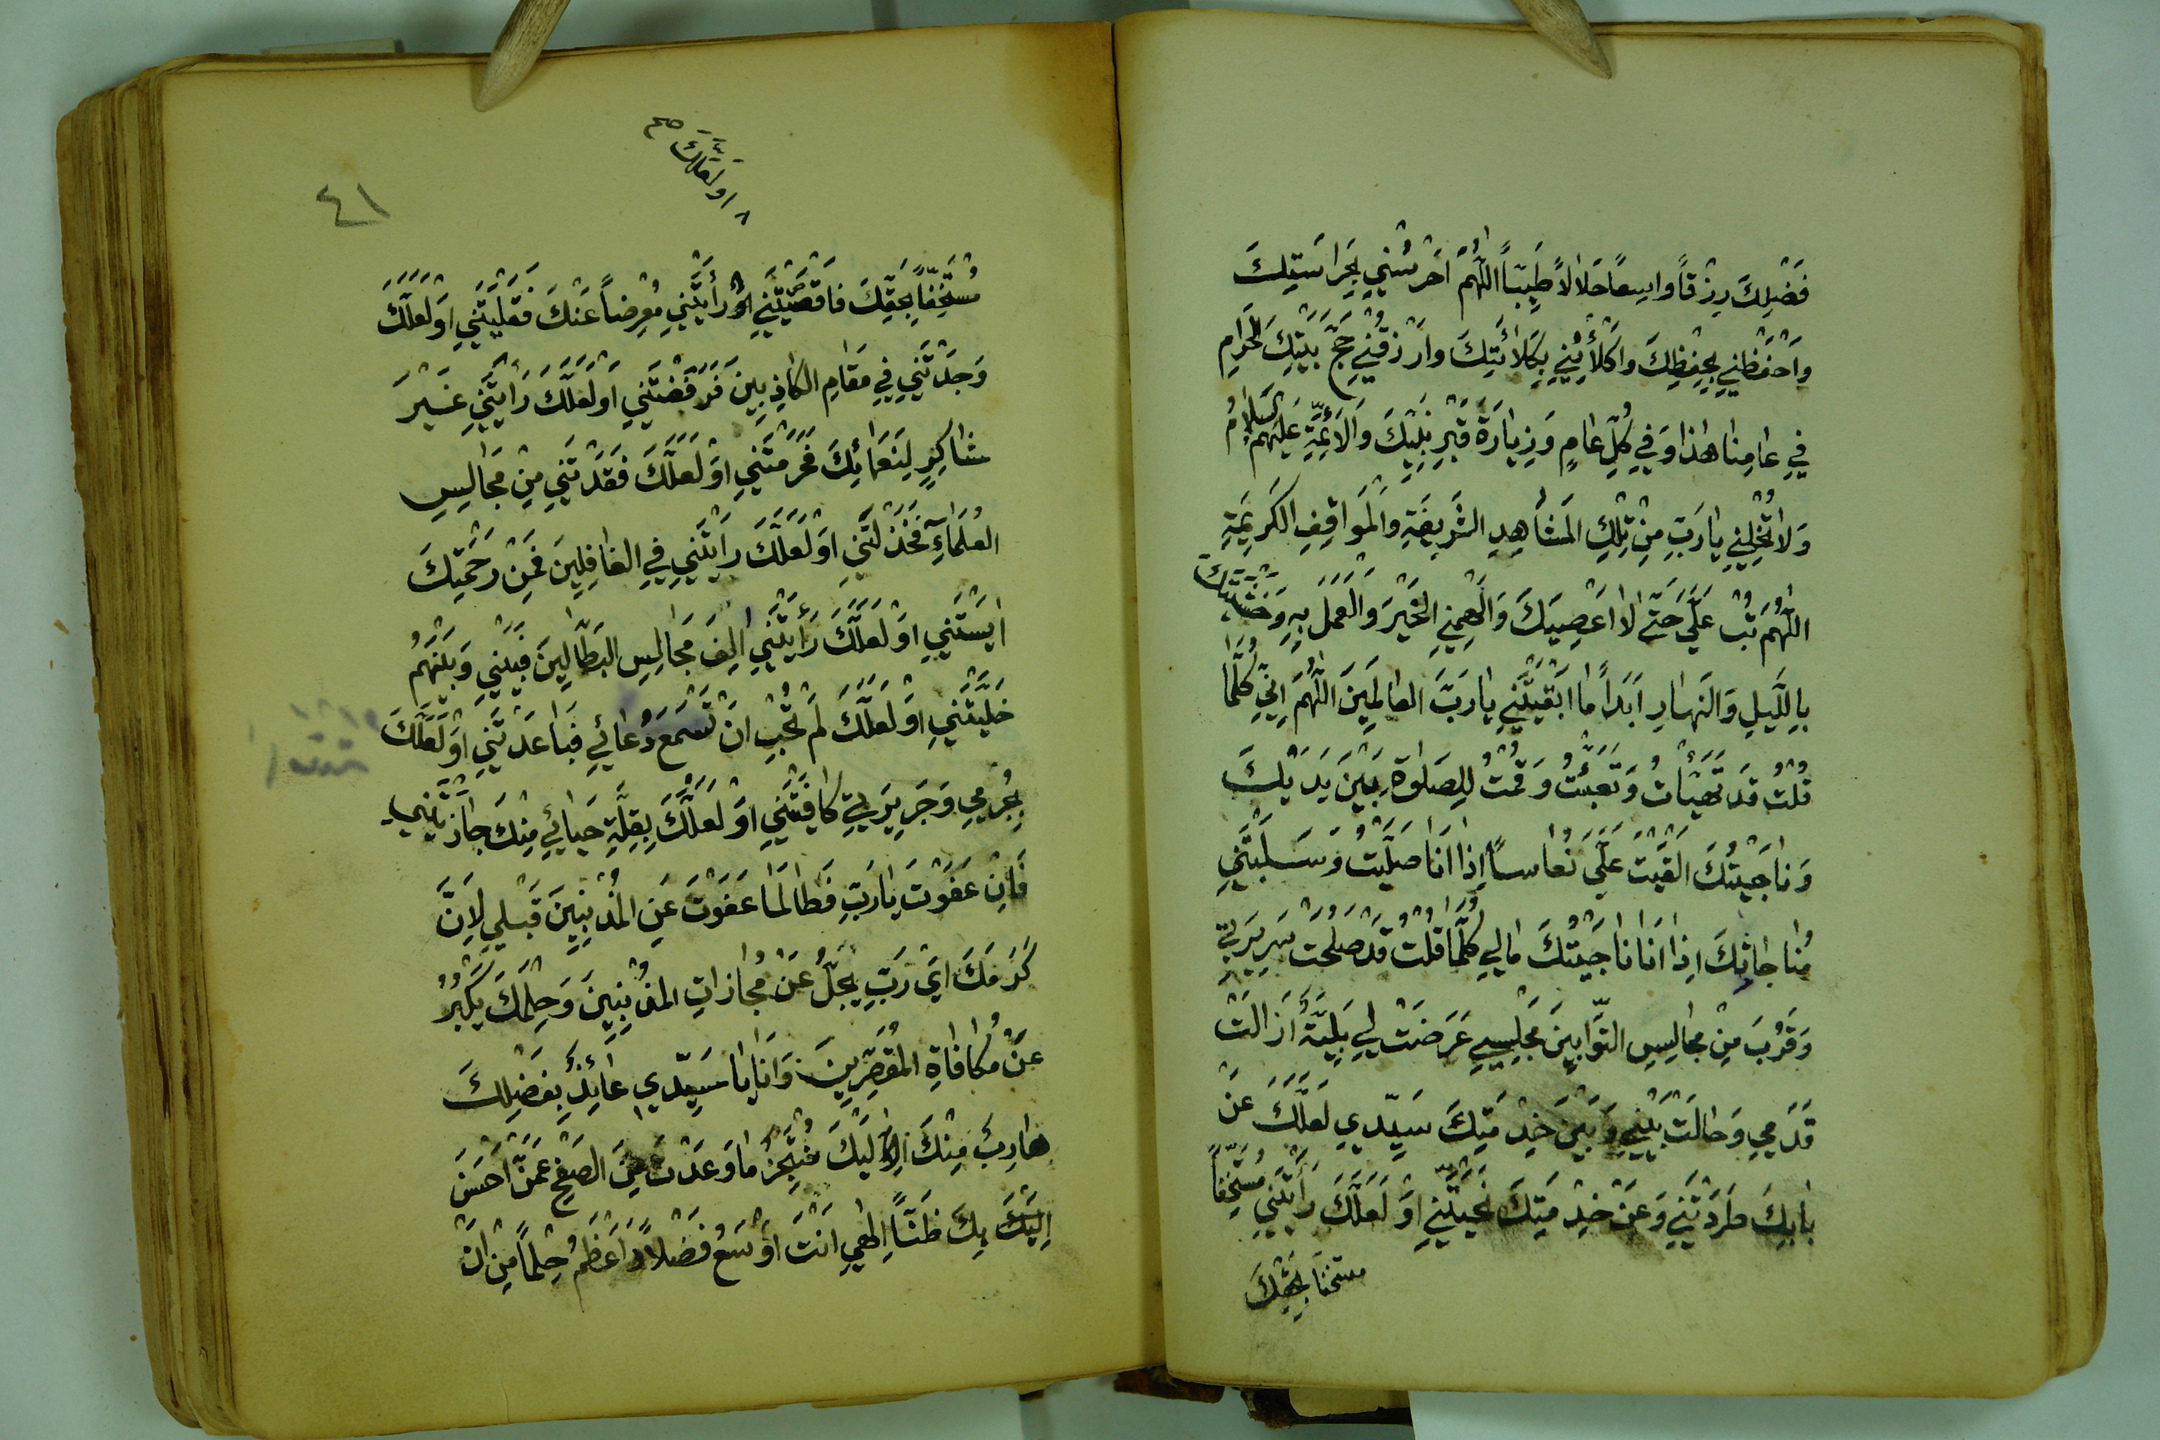 فَضْلِكَ رِزْقًا وَاسِعًا حَلَالًا طَيِّبًا اَللّٰهُمَّ احْرُسْنِي بِحَرَاسَتِكَ
وَاحْفَظْنِي بِحِفْظِكَ وَاكْلَأْنِي بِكَلَائَتِكَ وَارْزُقْنِي حَجَّ بَيْتِكَ الْحَرَامِ
فِي عَامِنَا هٰذَا وَفِي كُلِّ عَامٍ وَزِيَارَةَ قَبْرِ نَبِيِّكَ وَالْاَئِمَّةِ عَلَيْهِمُ السَّلَامُ
وَلَا تُخْلِنِي يَا رَبِّ مِنْ تِلْكَ الْمَشَاهِدِ الشَّرِيفَةِ وَالْمَوَاقِفِ الْكَرِيمَةِ
اَللّٰهُمَّ تُبْ عَلَيَّ حَتّٰى لَا اَعْصِيَكَ وَاَلْهِمْنِي الْخَيْرَ وَالْعَمَلَ بِهِ وَخَشْيَتَكَ
بِاللَّيْلِ وَالنَّهَارِ اَبَدًا مَا اَبْقَيْتَنِي يَا رَبَّ الْعَالَمِينَ اَللّٰهُمَّ اِنِّي كُلَّمَا
قُلْتُ قَدْ تَهَيَّأْتُ وَتَعَبَّئْتُ وَقُمْتُ لِلصَّلٰوةِ بَيْنَ يَدَيْكَ
وَنَاجَيْتُكَ اَلْقَيْتَ عَلَيَّ نُعَاسًا اِذَا اَنَا صَلَّيْتُ وَسَلَبْتَنِي
مُنَاجَاتِكَ اِذَا اَنَا نَاجَيْتُكَ مَا لِي كُلَّمَا قُلْتُ قَدْ صَلُحَتْ سَرِيرَتِي
وَقَرُبَ مِنْ مَجَالِسِ التَّوَّابِينَ مَجْلِسِي عَرَضَتْ لِي بَلِيَّةٌ اَزَالَتْ
قَدَمِي وَحَالَتْ بَيْنِي وَبَيْنَ خِدْمَتِكَ سَيِّدِي لَعَلَّكَ عَنْ
بَابِكَ طَرَدْتَنِي وَعَنْ خِدْمَتِكَ نَحَّيْتَنِي اَوْ لَعَلَّكَ رَاَيْتَنِي مُسْتَخِفًّا
مستخفا بحقك
۸ اَوْ لَعَلَّكَ صح
٤١
مُسْتَخِفًّا بِحَقِّكَ فَاَقْصَيْتَنِي اَوْ رَأَيْتَنِي مُعْرِضًا عَنْكَ فَقَلَيْتَنِي اَوْ لَعَلَّكَ
وَجَدْتَنِي فِي مَقَامِ الْكَاذِبِينَ فَرَفَضْتَنِي اَوْ لَعَلَّكَ رَاَيْتَنِي غَيْرَ
شَاكِرٍ لِنَعْمَائِكَ فَحَرَمْتَنِي اَوْ لَعَلَّكَ فَقَدْتَنِي مِنْ مَجَالِسِ
الْعُلَمَاءِ فَخَذَلْتَنِي اَوْ لَعَلَّكَ رَاَيْتَنِي فِي الْغَافِلِينَ فَمِنْ رَحْمَتِكَ
اٰيَسْتَنِي اَوْ لَعَلَّكَ رَأَيْتَنِي اٰلِفَ مَجَالِسِ الْبَطَّالِينَ فَبَيْنِي وَبَيْنَهُمْ
خَلَّيْتَنِي اَوْ لَعَلَّكَ لَمْ تُحِبَّ اَنْ تَسْمَعَ دُعَائِي فَبَاعَدْتَنِي اَوْ لَعَلَّكَ
بِجُرْمِي وَجَرِيرَتِي كَافَيْتَنِي اَوْ لَعَلَّكَ بِقِلَّةِ حَيَائِي مِنْكَ جَازَيْتَنِي
فَاِنْ عَفَوْتَ يَا رَبِّ فَطَالَمَا عَفَوْتَ عَنِ الْمُذْنِبِينَ قَبْلِي لِاَنَّ
كَرَمَكَ اَيْ رَبِّ يَجِلُّ عَنْ مُجَازَاتِ الْمُذْنِبِينَ وَحِلْمَكَ يَكْبُرُ
عَنْ مُكَافَاةِ الْمُقَصِّرِينَ وَاَنَا يَا سَيِّدِي عَائِذٌ بِفَضْلِكَ
هَارِبٌ مِنْكَ اِلَيْكَ مُتَنَجِّزٌ مَا وَعَدْتَ مِنَ الصَّفْحِ عَمَّنْ اَحْسَنَ
اِلَيْكَ بِكَ ظَنًّا اِلٰهِي اَنْتَ اَوْسَعُ فَضْلًا وَاَعْظَمُ حِلْمًا مِنْ اَنْ